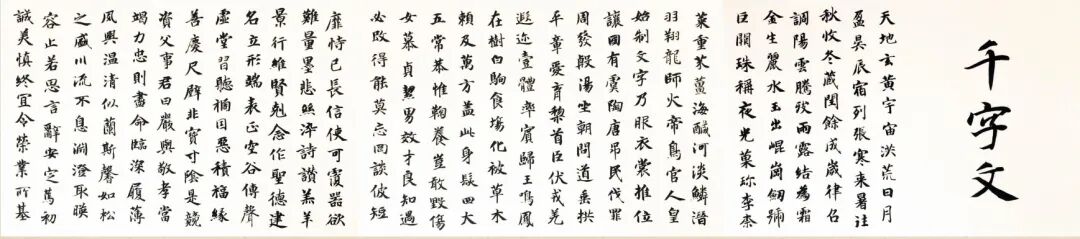 千字文
天地玄黃宇宙洪荒日月
盈昃辰宿列張寒来暑往
秋收冬藏閏餘成歲律召
調陽雲騰致雨露結為霜
金生麗水玉出崐崗劒號
巨闕珠稱夜光菓珎李柰
菜重芥薑海鹹河淡鱗潛
羽翔龍師火帝鳥官人皇
始制文字乃服衣裳推位
讓國有虞陶唐吊民伐罪
周發殷湯坐朝問道垂拱
平章愛育黎首臣伏戎羌
遐迩壹體率賓歸王鳴鳳
在樹白駒食場化被草木
賴及萬方蓋此身髮四大
五常恭惟鞠養豈敢毀傷
女慕貞絜男效才良知過
必改得能莫忘罔談彼短
靡恃己長信使可覆器欲
難量墨悲絲淬詩讃羔羊
景行維賢剋念作聖德建
名立形端表正空谷傳聲
虛堂習聽禍因惡積福緣
善慶尺璧非寶寸陰是競
資父事君曰嚴與敬孝當
竭力忠則盡命臨深履薄
夙興温清似蘭斯馨如松
之盛川流不息淵澄取暎
容止若思言辭安定篤初
誠美慎終宜令榮業所基